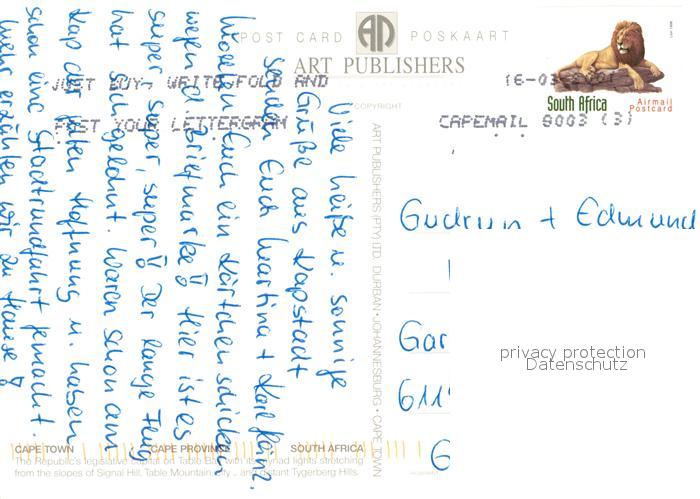 POST CARD AN POSKAART
ART PUBLISHERS
COPYRIGHT
JUST BUY, WRITE, FOLD AND
POST YOUR LETTERGRAM
16-03-
CAPEMAIL 8003 (3)
South Africa
Airmail
Postcard
Viele heiße u. sonnige
Grüße aus Kapstadt
senden Euch Martina + Karl Heinz.
Euch ein Kärtchen schicken
wegen d. Briefmarke! Hier ist es
super, super, super! Der lange Flug
hat sich gelohnt. Waren schon am
Kap der guten Hoffnung u. haben
schon eine Stadtrundfahrt gemacht.
mehr erzählen wir zu Hause!
ART PUBLISHERS (PTY) LTD. DURBAN • JOHANNESBURG • CAPE TOWN
Gudrun + Edmund
Gar
611
G
privacy protection
Datenschutz
CAPE TOWN CAPE PROVINCE SOUTH AFRICA
The Republic's legislative capital on Table Bay with its myriad lights stretching
from the slopes of Signal Hill, Table Mountain and distant Tygerberg Hills.